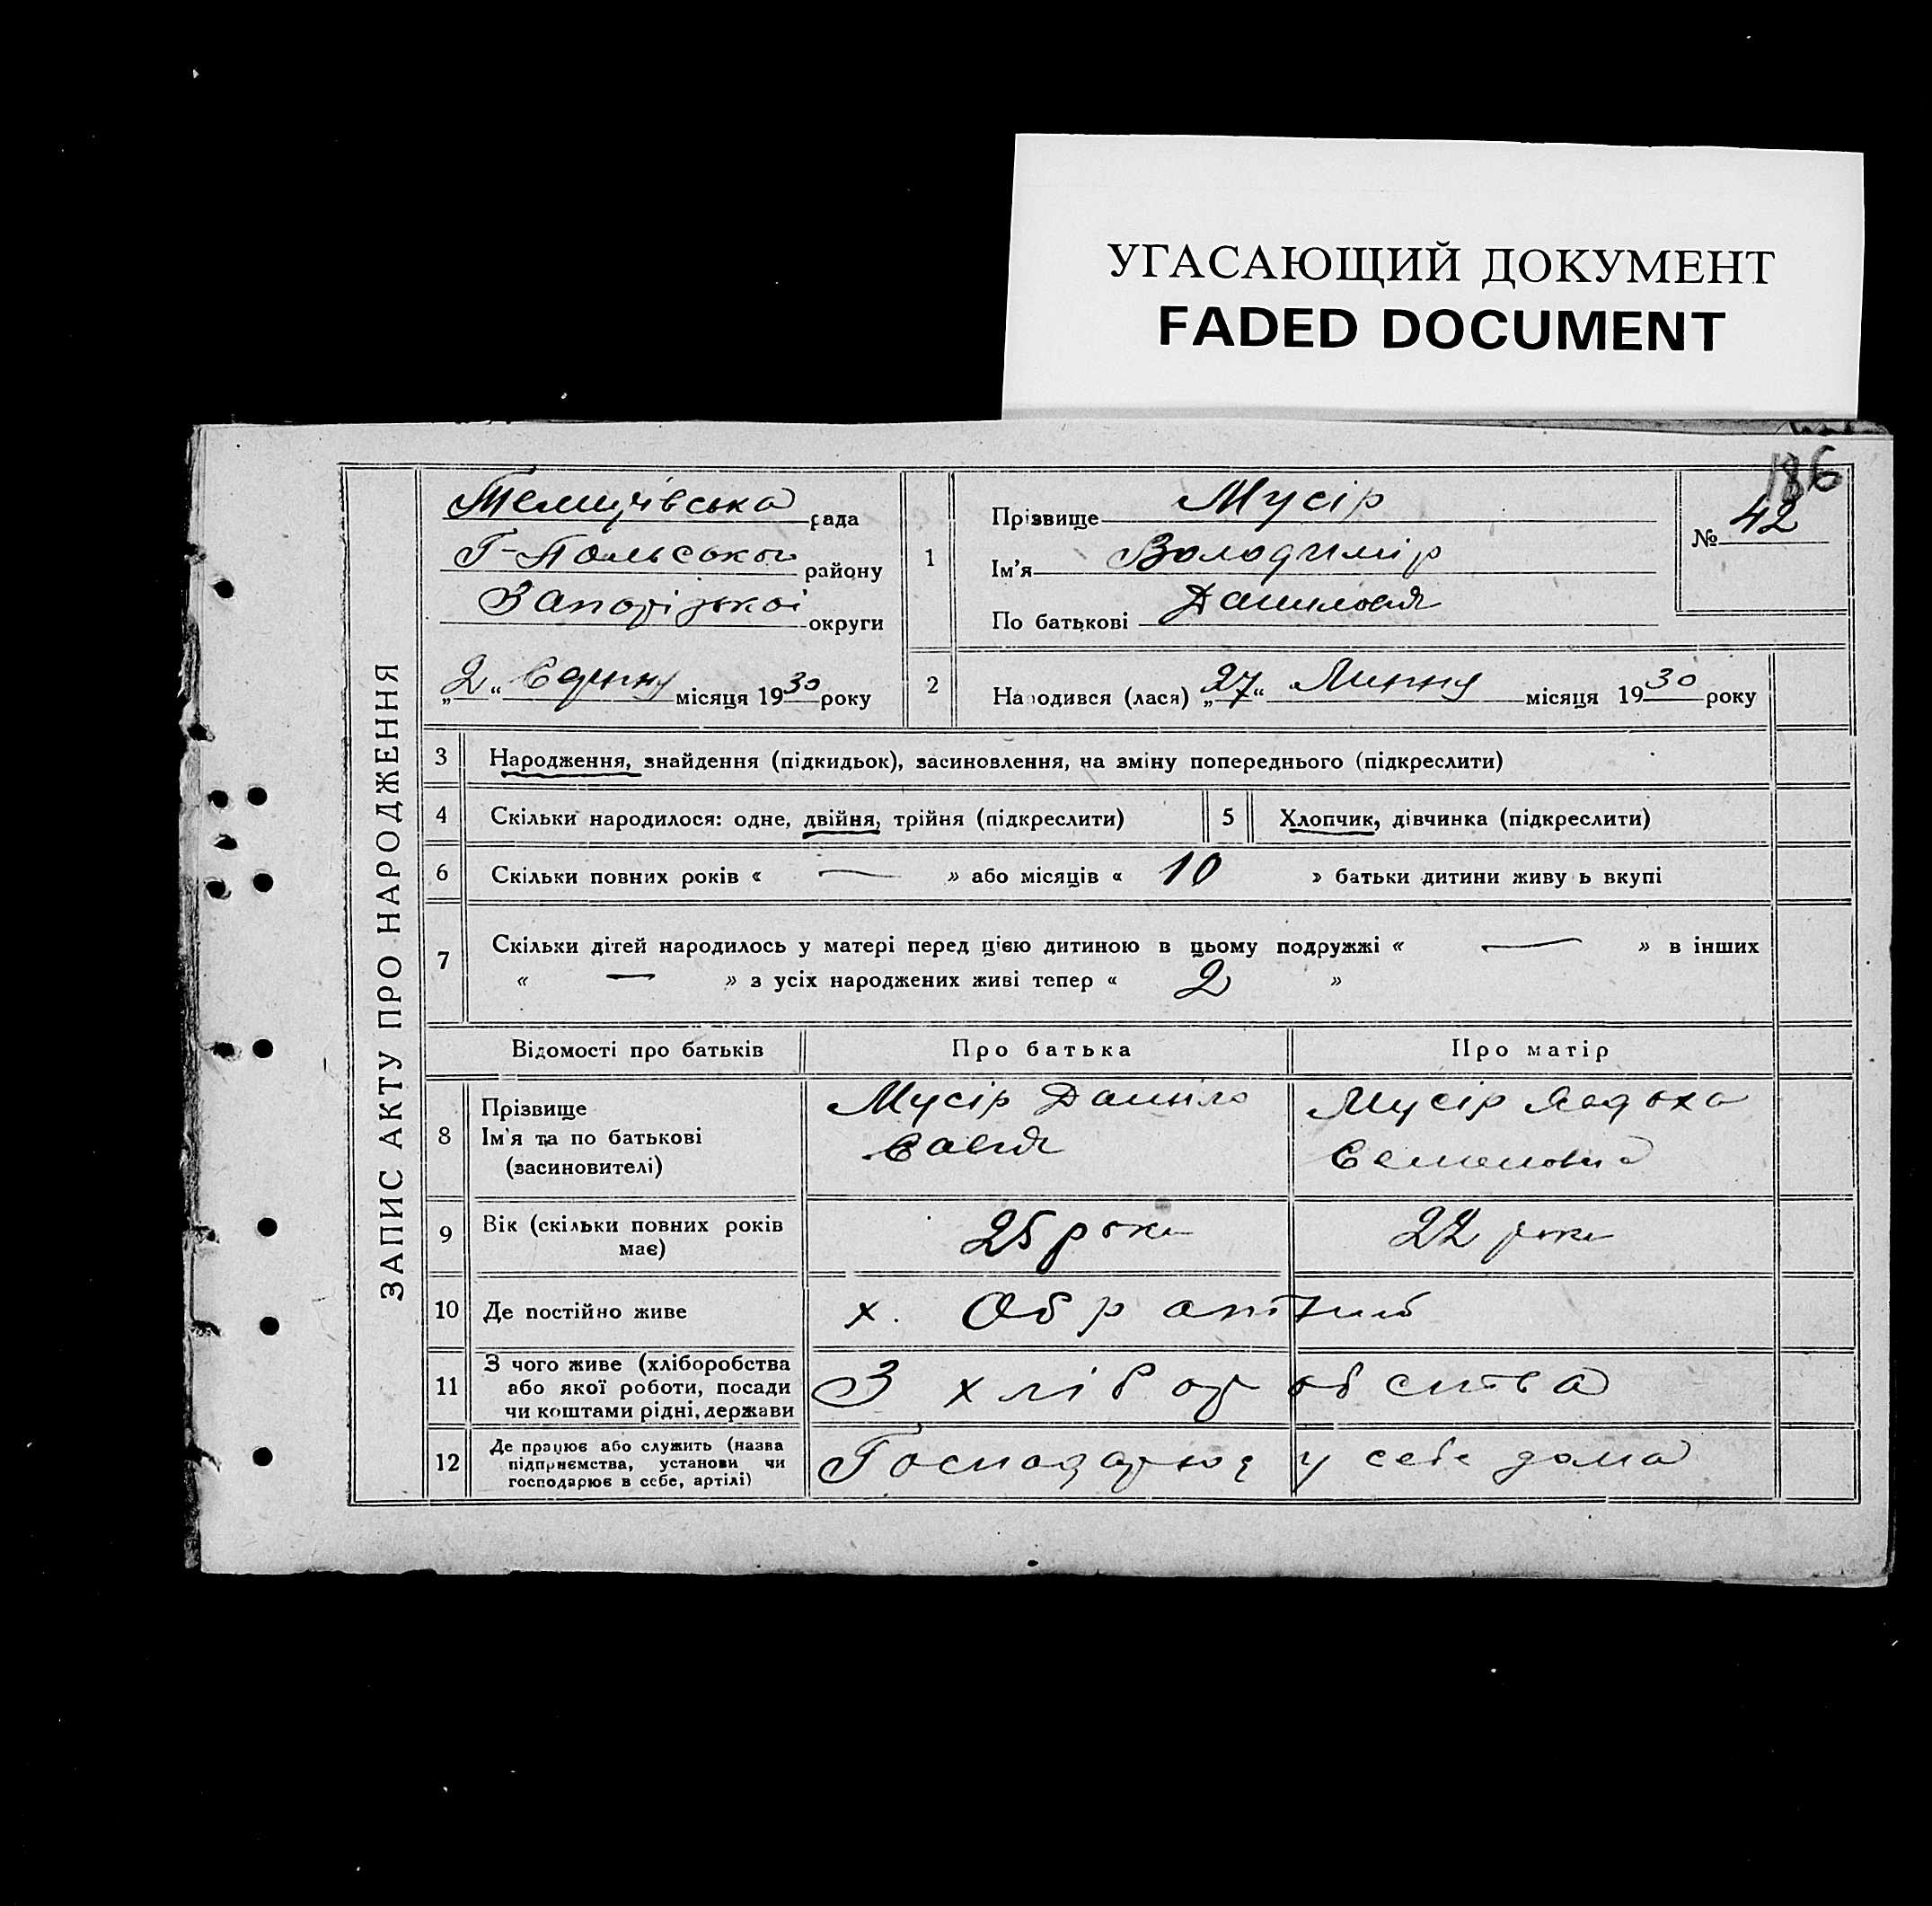 УГАСАЮЩИЙ ДОКУМЕНТ
FADED DOCUMENT
186
ЗАПИС АКТУ ПРО НАРОДЖЕННЯ
рада
Г-Польського району
Запорізької округи
„2“ Серпня місяця 1930 року
1
Прізвище Мусір
Ім'я Володимір
По батькові Данилович
№ 42
2
Народився (лася) „27“ Липня місяця 1930 року
3 Народження, знайдення (підкидьок), засиновлення, на зміну попереднього (підкреслити)
4 Скільки народилося: одне, двійня, трійня (підкреслити)
5 Хлопчик, дівчинка (підкреслити)
6 Скільки повних років « — » або місяців « 10 » батьки дитини живуть вкупі
7 Скільки дітей народилось у матері перед цією дитиною в цьому подружжі « — » в інших
« — » з усіх народжених живі тепер « 2 »
Відомості про батьків Про батька Про матір
8 Прізвище
Ім'я та по батькові
(засиновителі)
Мусір Данило
Савич
Мусір Явдоха
Семеновна
9 Вік (скільки повних років
має)
25 роки
22 роки
10 Де постійно живе
х.
11 З чого живе (хліборобства
або якої роботи, посади
чи коштами рідні, держави
З хліборобства
12 Де працює або служить (назва
підприємства, установи чи
господарює в себе, артілі)
Господарює у себе дома